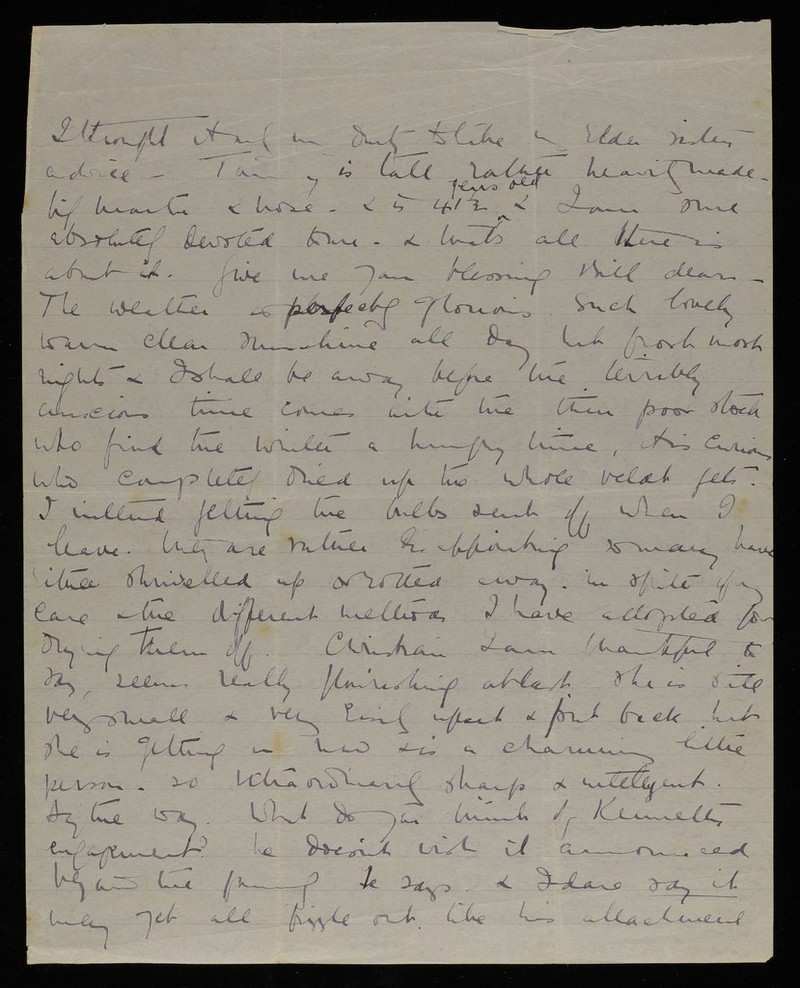 I thought it only my duty to take my Elder sisters
advice - Tommy is tall rather heavily made -
big mouth & nose - & is 41½ years old & I am sure
absolutely devoted to me - & that's all there is
about it. Give me your blessing Will dear -
The weather is perfectly glorious such lovely
warm clear sunshine all day but frost most
nights & I shall be away before the terribly
anxious time comes with the thin poor stock
who find the winter a hungry time, it is curious
how completely dried up the whole veldt gets.
I intend getting the bulbs sent off when I
leave. They are rather disappointing so many have
either shrivelled up or rotted away. in spite of my
care & the different methods I have adopted for
drying them off. Christian I am thankful to
say, seems really flourishing at last she is still
very small & very easily upset & put back but
she is getting on now & is a charming little
person - so extraordinarily sharp & intelligent.
By the way. What do you think of Kenneth's
engagement? he doesn't wish it announced
beyond the family he says. & I dare say it
may yet all fizzle out. like his attachment